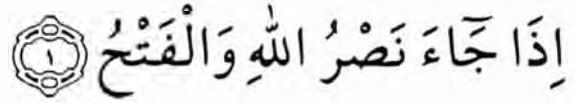 اِذَا جَٓاءَ نَصْرُ اللّٰهِ وَالْفَتْحُ ﴿١﴾